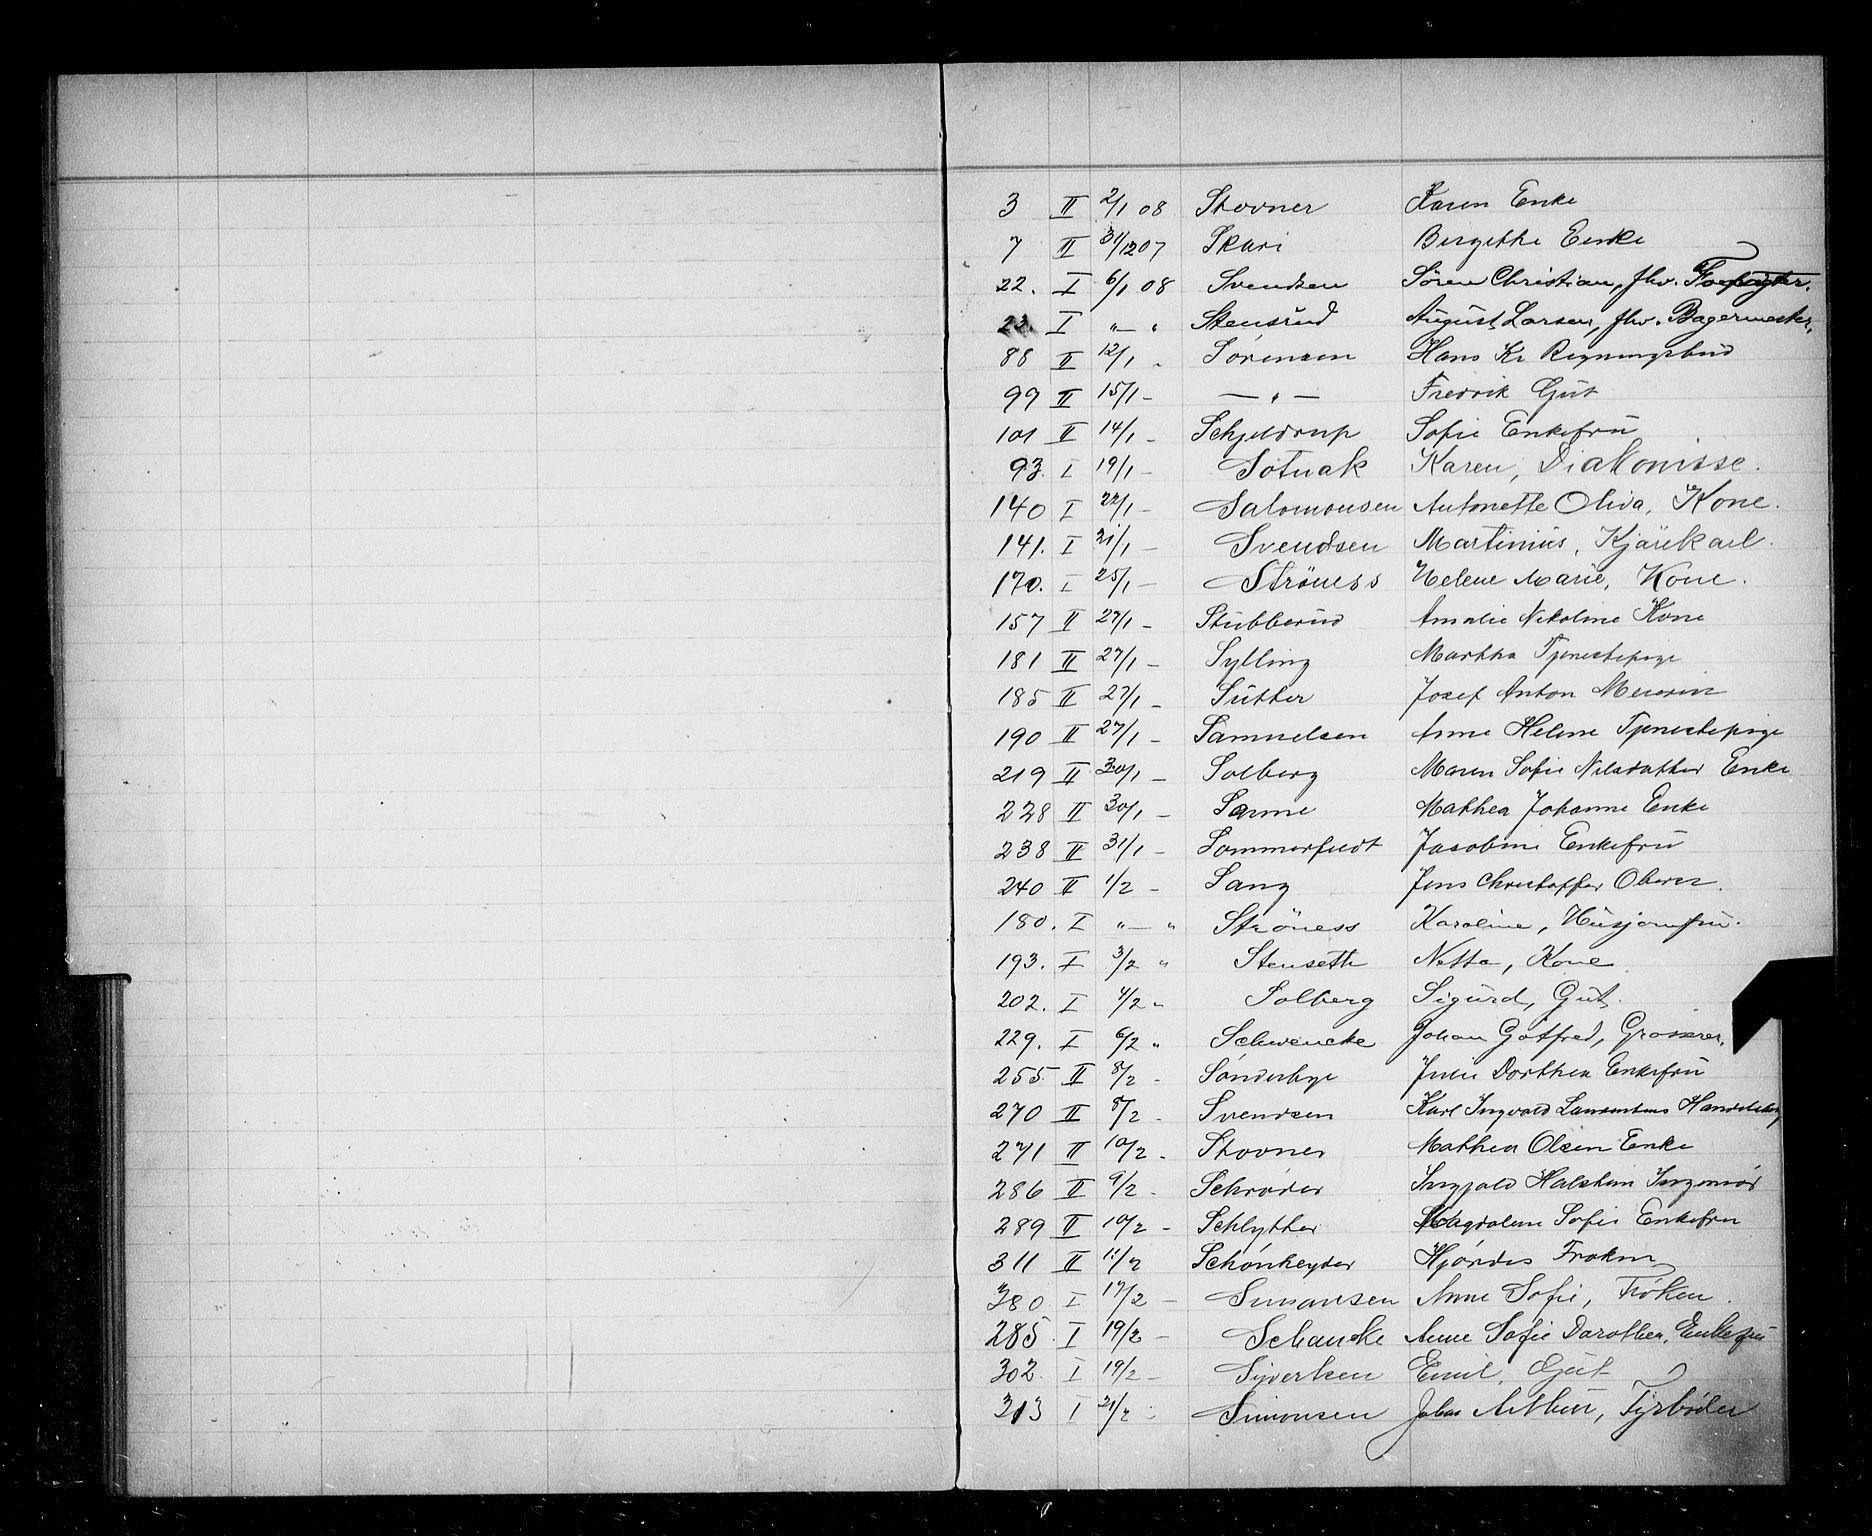 3 II 2/1 08 Stovner Karen Enke
7 II 31/12 07 Skari Birgithe Enke
22. I 6/1 08 Svendsen Sören Christian, fhv.
23. I "—" Stensrud August Larsen, fhv. Bagermester.
88 II 12/1 - Sørensen Hans Kr Regningsbud
99 II 15/1 - — " — Fredrik Gut
101 II 14/1 - Schjeldrup Sofie Enkefru
93. I 19/1 - Karen, Diakonisse.
140 I 22/1 - Salomonsen Antonette Oliva, Kone.
141. I 21/1 - Svendsen Martinius, Kjärekarl.
170. I 25/1 - Ströness Helene Marie, Kone.
157 II 27/1 - Stubberud Amalie Nikoline Kone
181 II 27/1 - Sylling Martha Tjenestepige
185 II 27/1 - Sutter Josef Anton
190 II 27/1 - Samuelsen Anne Helene Tjenestepige
219 II 30/1 - Solberg Maren Sofie Nilsdatter Enke
228 II 30/1 - Sanne Mathea Johanne Enke
238 II 31/1 - Sommerfeldt Jacobine Enkefru
240 II 1/2 - Sang Jens Christoffer
180. I "—" Ströness Karoline, Husjomfru.
193. I 3/2 " Stenseth Netta, Kone
202. I 4/2 " Solberg Sigurd, Gut.
229. I 6/2 " Schwencke Johan Gotfred, Grosserer.
255. II 8/2 - Sønderbye Julie Dorthea Enkefru
270 II 8/2 - Svendsen Karl Ingvald Laurentius
271 II 10/2 - Stovner Mathea Olsen Enke
286 II 9/2 - Schrøder Ingjald Halstein Ingeniør
289 II 10/2 - Schlytter Magdalene Sofie Enkefru
311 II 11/2 Schønheyder Hjørdis Frøken
280 I 17/2 - Simonsen Anne Sofie, Fröken.
285. I 19/2 - Schancke Anne Sofie Dorothea, Enkefru
302. I 19/2 - Sivertsen Emil, Gut
313 I 21/2 - Simonsen Johan Arthur, Fyrböder